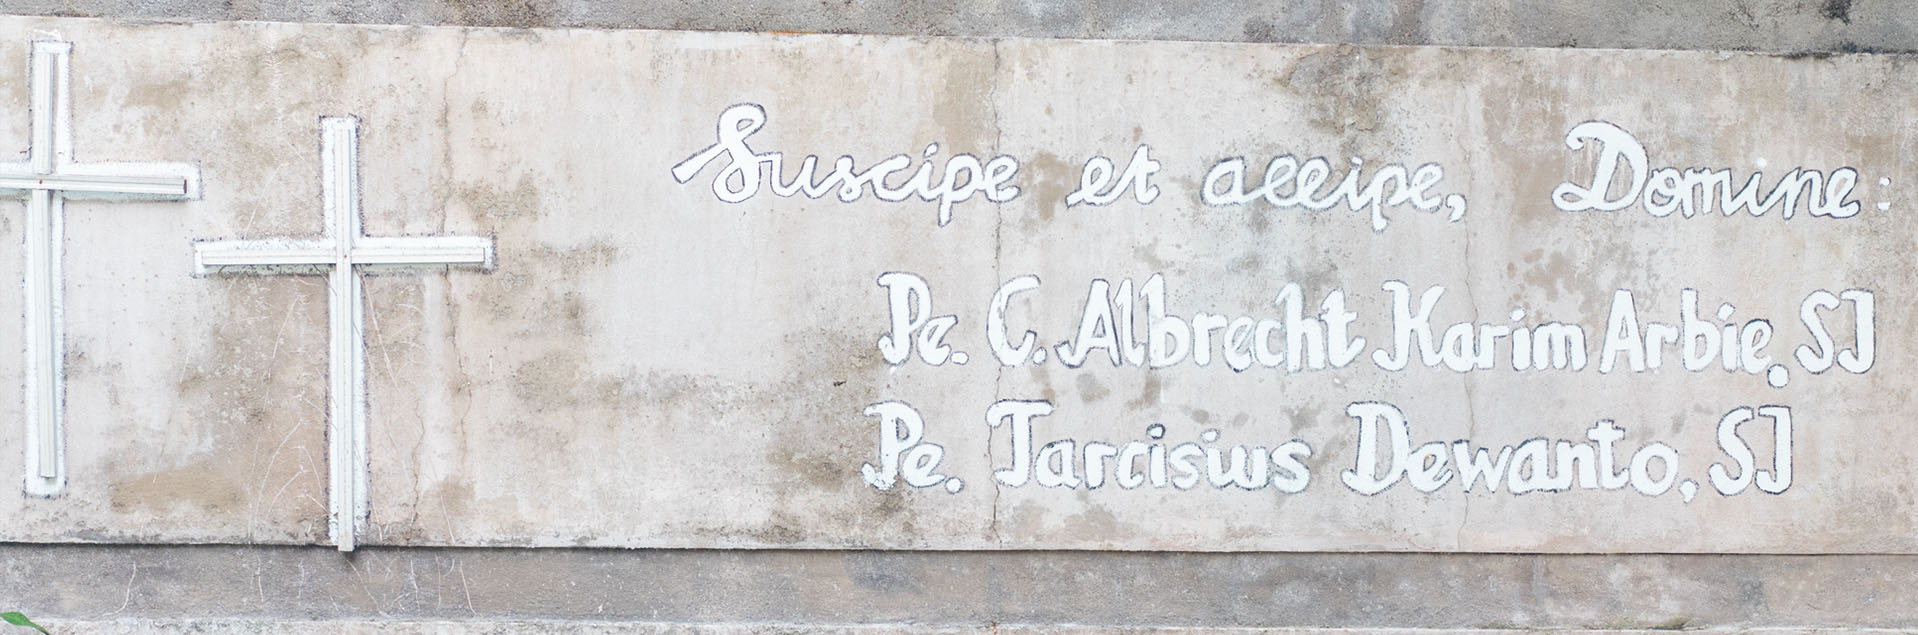 Suscipe et accipe, Domine:
Pe. C. Albrecht Karim Arbie. SJ
Pe. Tarcisius Dewanto, SJ